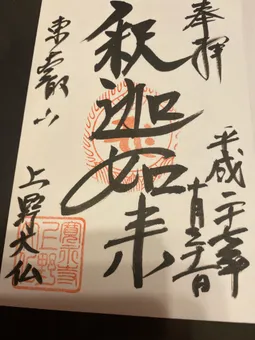 奉拝
平成二十六年
十月三十一日
釈迦如来
東叡山
上野大仏